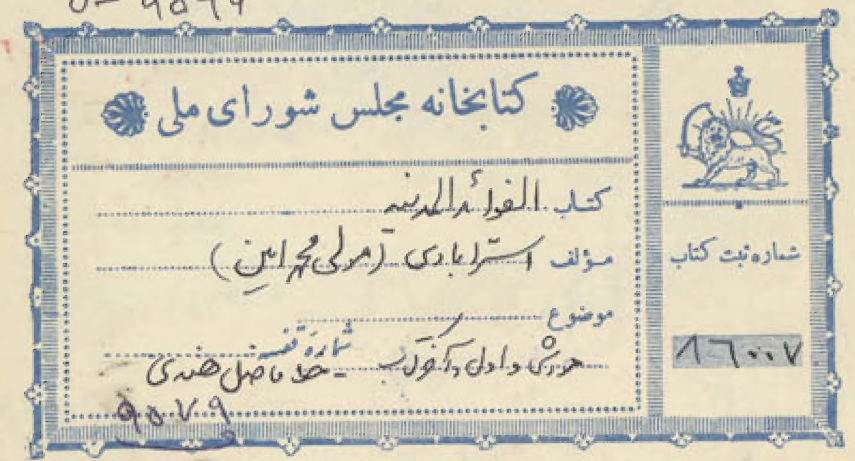 کتابخانه مجلس شورای ملی
کتاب الفوائد المدنیه
مؤلف استرابادی (مولی محمد امین)
موضوع
شماره قفسه
حواشی و اول و آخر کتاب - خط فاضل هندی
۹۰۷۹
شماره ثبت کتاب
۸۶۰۰۷